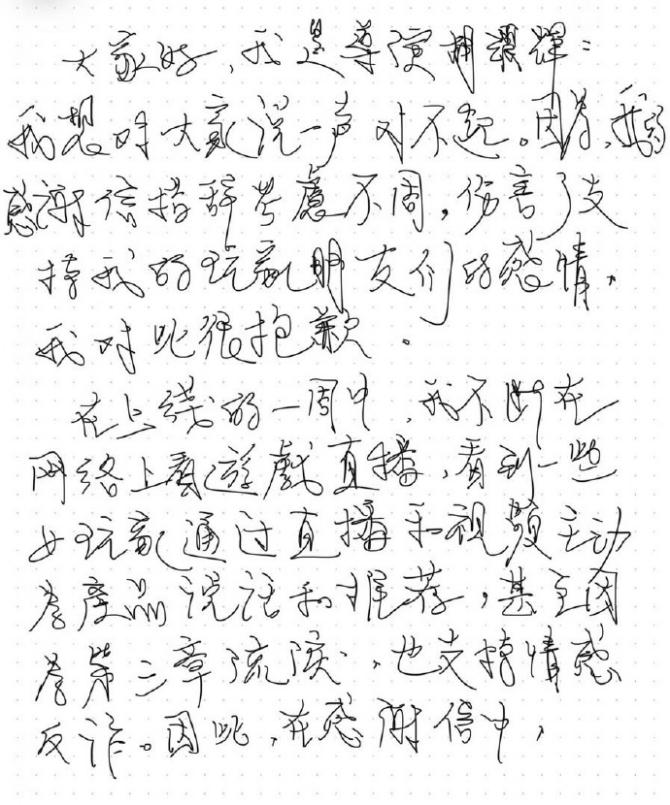 大家好，我是導演胡耀輝：
我想对大家说一声对不起。因为，我的
感謝信措辞考慮不周，伤害了支
持我的玩家朋友们的感情，
我对此很抱歉。
在上线的一周中，我不断在
网络上看遊戲直播，看到一些
女玩家通过直播和视频主动
为產品说话和推荐，甚至因
为第二章流泪，也支持情感
反诈。因此，在感謝信中，